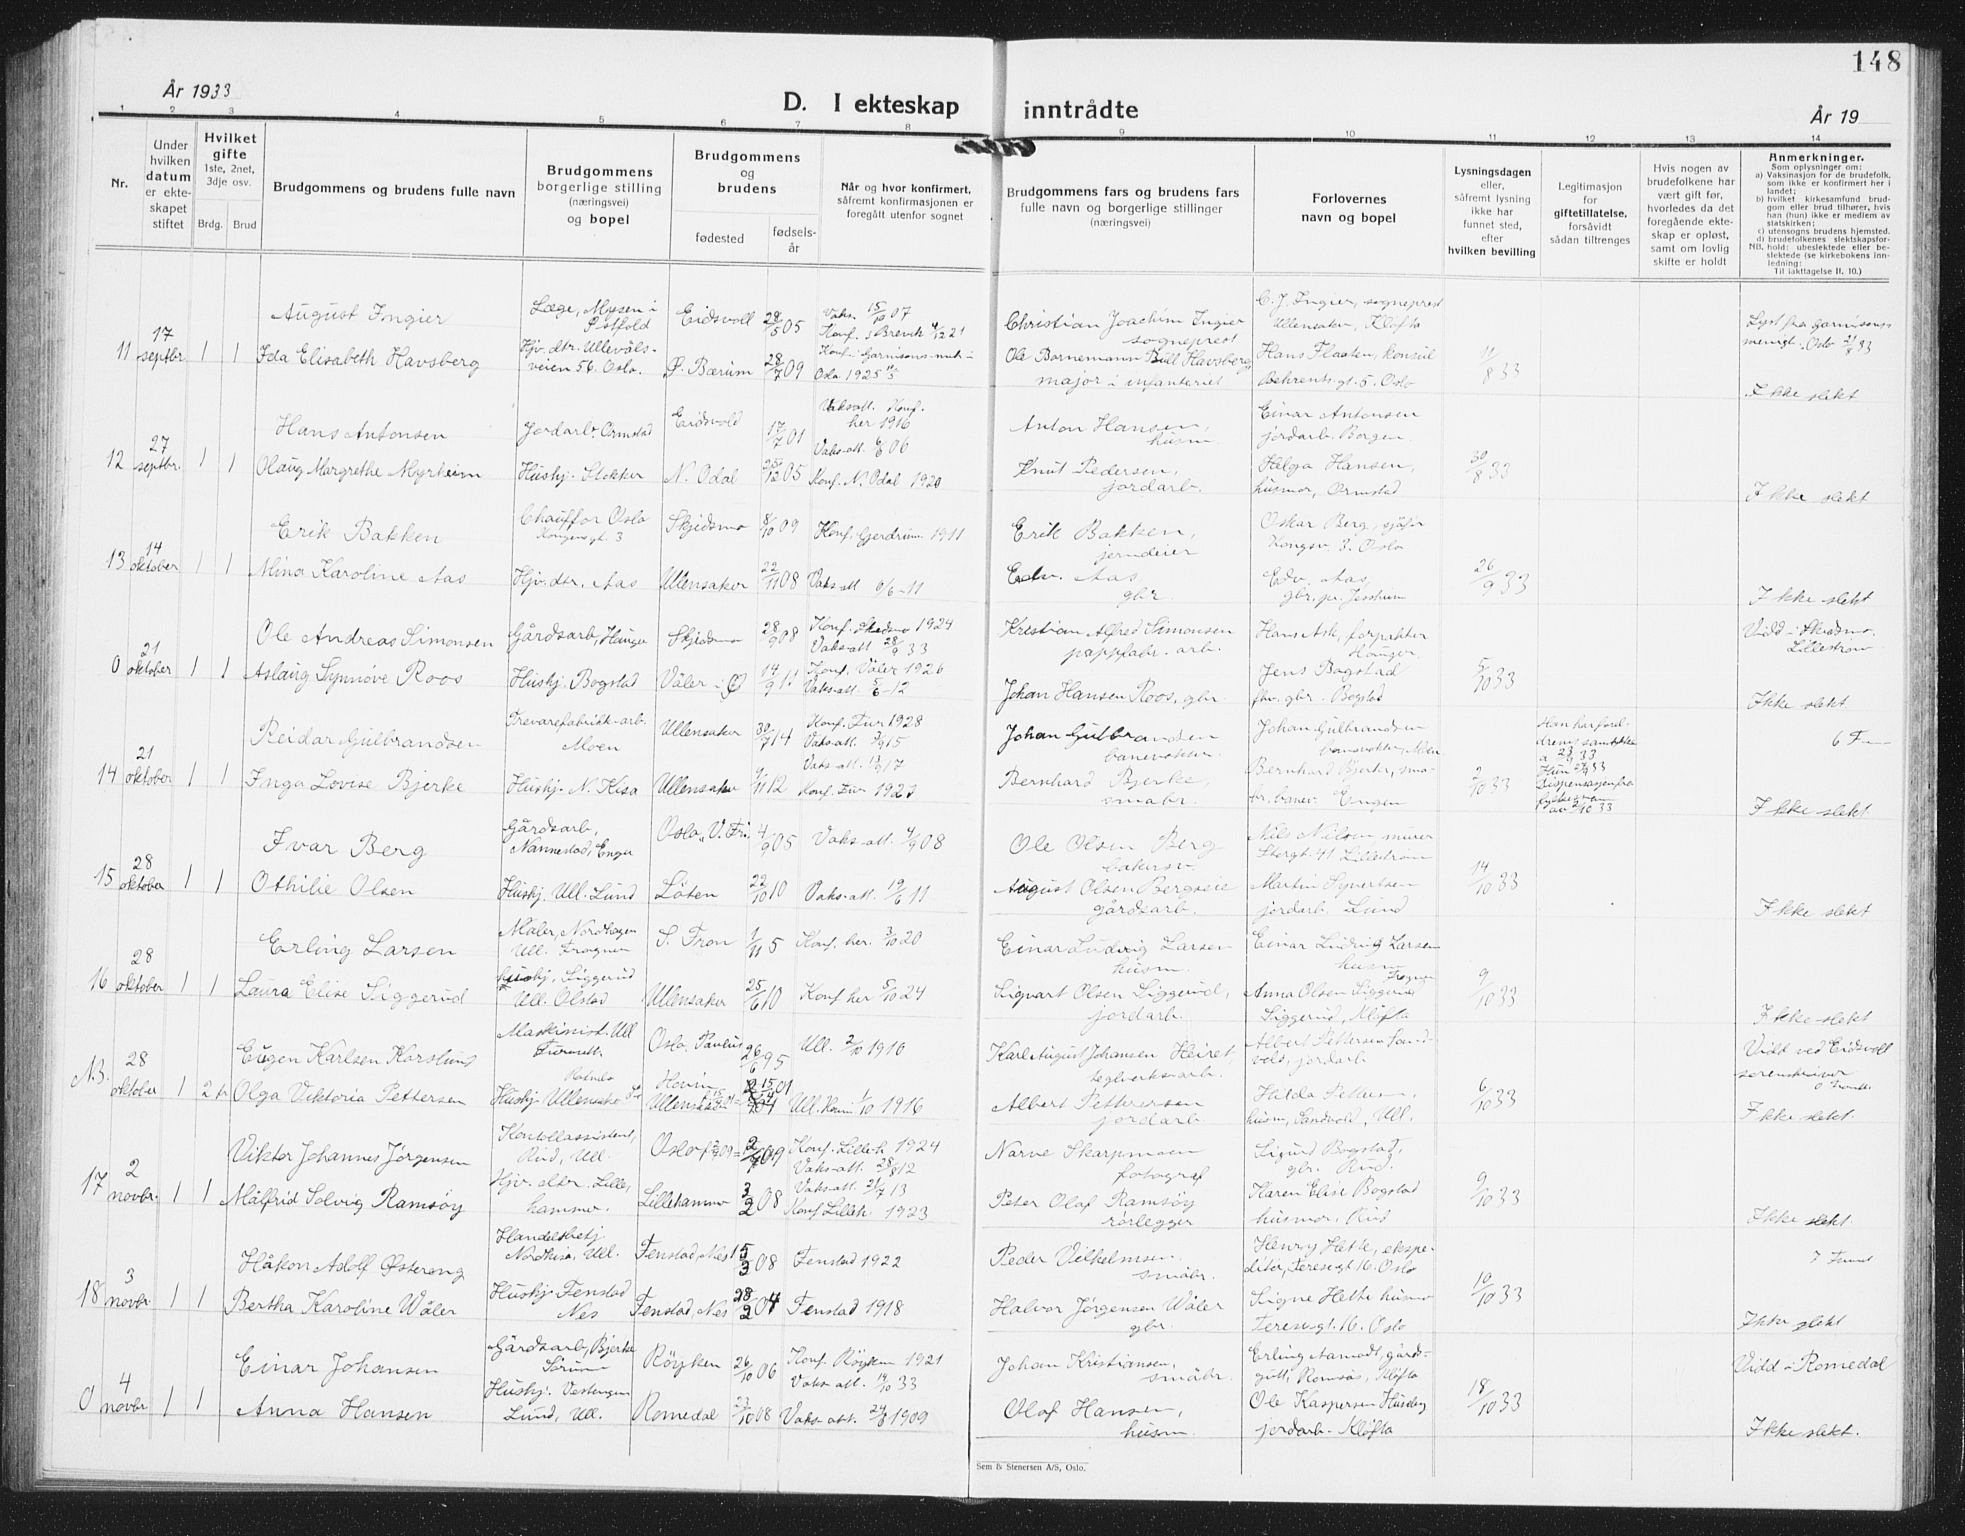 148
År 1933
D. I ekteskap inntrådte
År 19
1 2 3 4 5 6 7 8 9 10 11 12 13 14
Nr.
Under hvilken datum er ekteskapet stiftet
Hvilket gifte
1ste, 2net, 3dje osv.
Brdg. Brud
Brudgommens og brudens fulle navn
Brudgommens borgerlige stilling (næringsvei) og bopel
Brudgommens og brudens
fødested
fødselsår
Når og hvor konfirmert, såfremt konfirmasjonen er foregått utenfor sognet
Brudgommens fars og brudens fars fulle navn og borgerlige stillinger (næringsvei)
Forlovernes navn og bopel
Lysningsdagen eller, såfremt lysning ikke har funnet sted, efter hvilken bevilling
Legitimasjon for giftetillatelse, forsåvidt sådan tiltrenges
Hvis nogen av brudefolkene har vært gift før, hvorledes da det foregående ekteskap er opløst, samt om lovlig skifte er holdt
Anmerkninger.
Som oplysninger om:
a) Vaksinasjon for de brudefolk, som ikke er konfirmert her i landet;
b) hvilket kirkesamfund brudgom eller brud tilhører, hvis han (hun) ikke er medlem av statskirken;
c) utensogns brudens hjemsted.
d) brudefolkenes slektskapsforhold: ubeslektede eller beslektede (se kirkebokens innledning:
NB.
Til iakttagelse II. 10.)
11 17 septbr. 1 1
August Ingier
Læge, Mysen i Østfold
Eidsvoll 28/5 05
Vaks. 15/10 07
Konf. i Brevik 4/12 21
Christian Joachim Ingier sogneprest
C. J. Ingier, sogneprest Ullensaker, Kløfta
11/8 33
Ida Elisabeth Havsberg
Hjv. dtr. Ullevålsveien 56. Oslo.
Ø. Bærum 28/7 09
Ole Bornemann Bull Havsberg major i infanteriet
Hans Flaaten, konsul Behrentsgt. 5. Oslo
Ikke slekt
12 27 septbr. 1 1
Hans Antonsen
Jordarb. Ormstad
Eidsvold 17/7 01
Vaksatt. Konf. her 1916
Anton Hansen, husm.
Einar Antonsen jordarb. Borgen.
30/8 33
Olaug Margrethe Myrheim
Hushj. Slokker
N. Odal 05
Vaks-att. 6/6 06
Konf. N. Odal 1920
Knut Pedersen, jordarb.
Helga Hansen, husmor, Ormstad
Ikke slekt
13 14 oktober 1 1
Erik Bakken
Chauffør Oslo Kongensgt. 3
Skjedsmo 8/10 09
Konf. Gjerdrum 1911
Erik Bakken,
Oskar Berg, sjåfør Kongsv. 3. Oslo
26/9 33
Mina Karoline Aas
Hjv. dtr. Aas
Ullensaker 22/11 08
Vaks-att 0/6-11
Edv. Aas, gbr.
Edv. Aas, gbr. pr. Jessheim
Ikke slekt
0 21 oktober 1 1
Ole Andreas Simonsen
Gårdsarb, Hauger
Skjedsmo 28/9 08
Konf. Skedsmo 1924
Vaks-att 28/9 33
Kristian Alfred Simonsen pappfabr. arb.
Hans Ask, forpakter Hauger.
5/10 33
Vidd i Skedsmo. Lillestrøm
Aslaug Synnøve Roos
Hushj. Bogstad
Våler i Ø 14/9 11
Konf. Våler 1926
Vaks-att. 5/6-12
Johan Hansen Roos, gbr.
Jens Bogstad fhv. gbr. Bogstad
Ikke slekt
14 21 oktober 1 1
Reidar Gulbrandsen
Trevarefabrikk-arb. Moen
Ullensaker 30/7 14
Konf. Fur 1928
Vaks-att. 3/9 15
Johan Gulbrandsen banevokter.
Johan Gulbrandsen banevokter, Moen
2/10 33
Inga Lovise Bjerke
Hushj. N. Kisa
Ullensaker 9/11 12
Vaks-att. 13/9 17
Bernhard Bjerke, småbr.
Bernhard Bjerke, småbr. banev. Engen
Ikke slekt
15 28 oktober 1 1
Ivar Berg
Gårdsarb, Nannestad, Enger
4/9 05
Vaks-att. 4/9 08
Ole Olsen Berg
Nils Nilsen murer Storgt. 41 Lillestrøm
14/10 33
Othilie Olsen
Hushj. Ull. Lund
Löten 22/10 10
Vaks-att. 19/6 11
August Olsen Bergseie gårdsarb.
Martin Syvertsen jordarb. Lund
Ikke slekt
16 28 oktober 1 1
Erling Larsen
Maler, Nordhagen Ull. Frogner
S. Fron 1/11 5
Konf. her. 3/10 20
Einar Ludvig Larsen husm.
Einar Ludvig Larsen husm Frogner
9/10 33
Laura Elise Siggerud
Hushj, Siggerud Ull. Olstad
Ullensaker 25/6 10
Konf her 5/10 24
Sigvart Olsen Siggerud, jordarb.
Anna Olsen Siggerud Siggerud, Kløfta
Ikke slekt
N3. 28 oktober 1 2
Eugen Karlsen Korslund
Maskinist. Ull
Oslo, Paulus 26/6 95
Ull. 2/10 1910
Karl August Johansen Heiret, teglverksarb.
Albert Pettersen Sandvold, jordarb
6/10 33
Vidd ved Eidsvoll sorenskriver
Olga Viktoria Pettersen
Hushj Ullensaker
Hovin Ullensaker
Ull. Hovin 1/10 1916
Albert Pettersen jordarb
Hilda Petters, husm, Sandvold, Ull.
Ikke slekt.
17 2 novbr. 1 1
Viktor Johannes Jørgensen
Kontollassistent, Rud, Ull.
Oslo 09
Konf. Lilleh. 1924
Vaks-att. 28/8 12
Narve Skarpmoen fotograf
Sigurd Bogstad, gbr. Rud.
9/10 33
Målfrid Solveig Ramsøy
Hjv. dtr. Lillehammer.
Lillehammer 3/2 08
Vaks-att. 21/7 13
Konf Lilleh. 1923
Peter Olaf Ramsøy rørlegger
Karen Elise Bogstad husmor, Rud
Ikke slekt.
18 3 novbr. 1 1
Håkon Adolf Østereng
Handelsbetj Nordkisa, Ull.
Fenstad, Nes 15/3 08
Fenstad 1922
Peder Vilhelmsen småbr.
Henry Hette, ekspeditør, Teresegt 16. Oslo
10/10 33
Bertha Karoline Wåler
Hushj Fenstad Nes
Fenstad, Nes 28/2 04
Fenstad 1918
Halvor Jørgensen Wåler gbr.
Signe Hette husmor Teresegt. 16. Oslo
Ikke slekt
0 4 novbr 1 1
Einar Johansen
Gårdsarb, Bjerke Sørum
Röyken 26/10 06
Konf. Röyken 1921
Vaks-att. 19/10 33
Johan Kristiansen, småbr.
Erling Aamodt, gårdsgutt, Ramsås, Kløfta
18/10 33
Vidd i Romedal
Anna Hansen
Hushj. Vestengen Lund, Ull.
Romedal 23/10 08
Vaks-att. 24/8 1909
Olaf Hansen, husm.
Ole Kaspersen Huseby jordarb. Kløfta
Ikke slekt.
Sem & Stenersen A/S, Oslo.